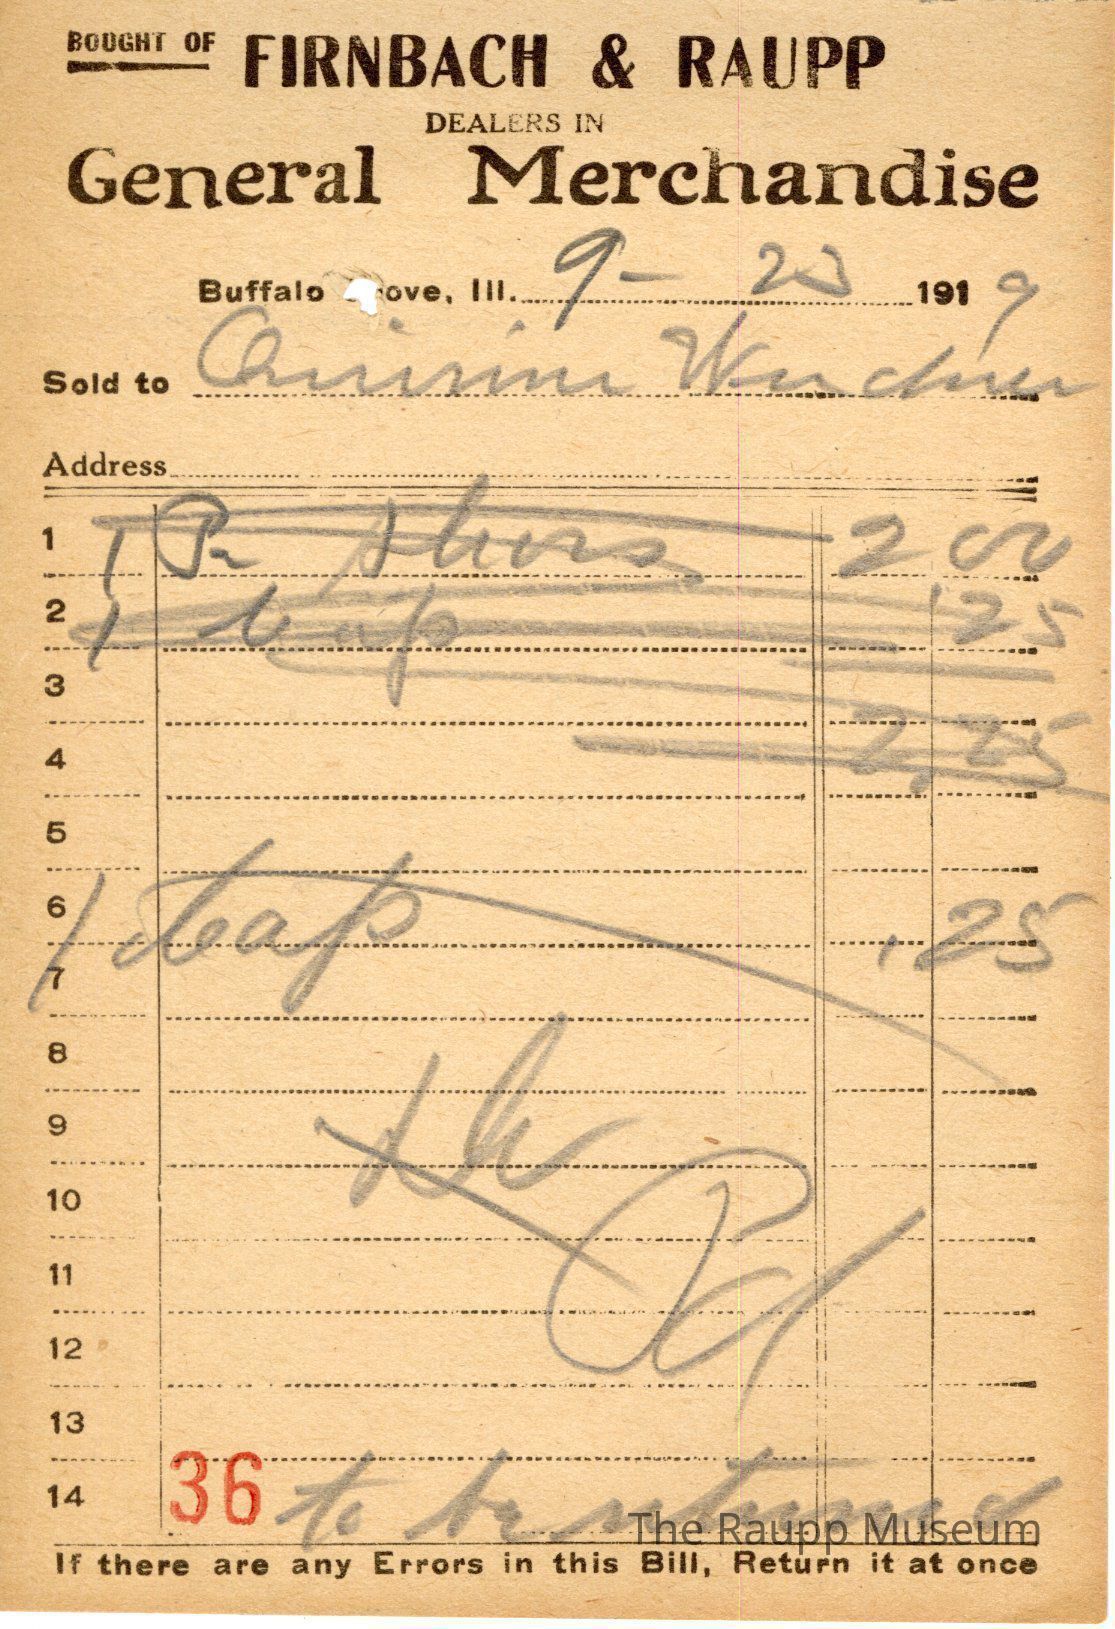 BOUGHT OF FIRNBACH & RAUPP
DEALERS IN
General Merchandise
Buffalo ove, Ill. 9- 23 1919
Sold to
Address
1 1 Pr shoes 2 00
2 1 cap .25
3
4 2.25
5
6 1 cap .25
7
8
9
10
11
12
13
14 36 to be returned
The Raupp Museum
If there are any Errors in this Bill, Return it at once